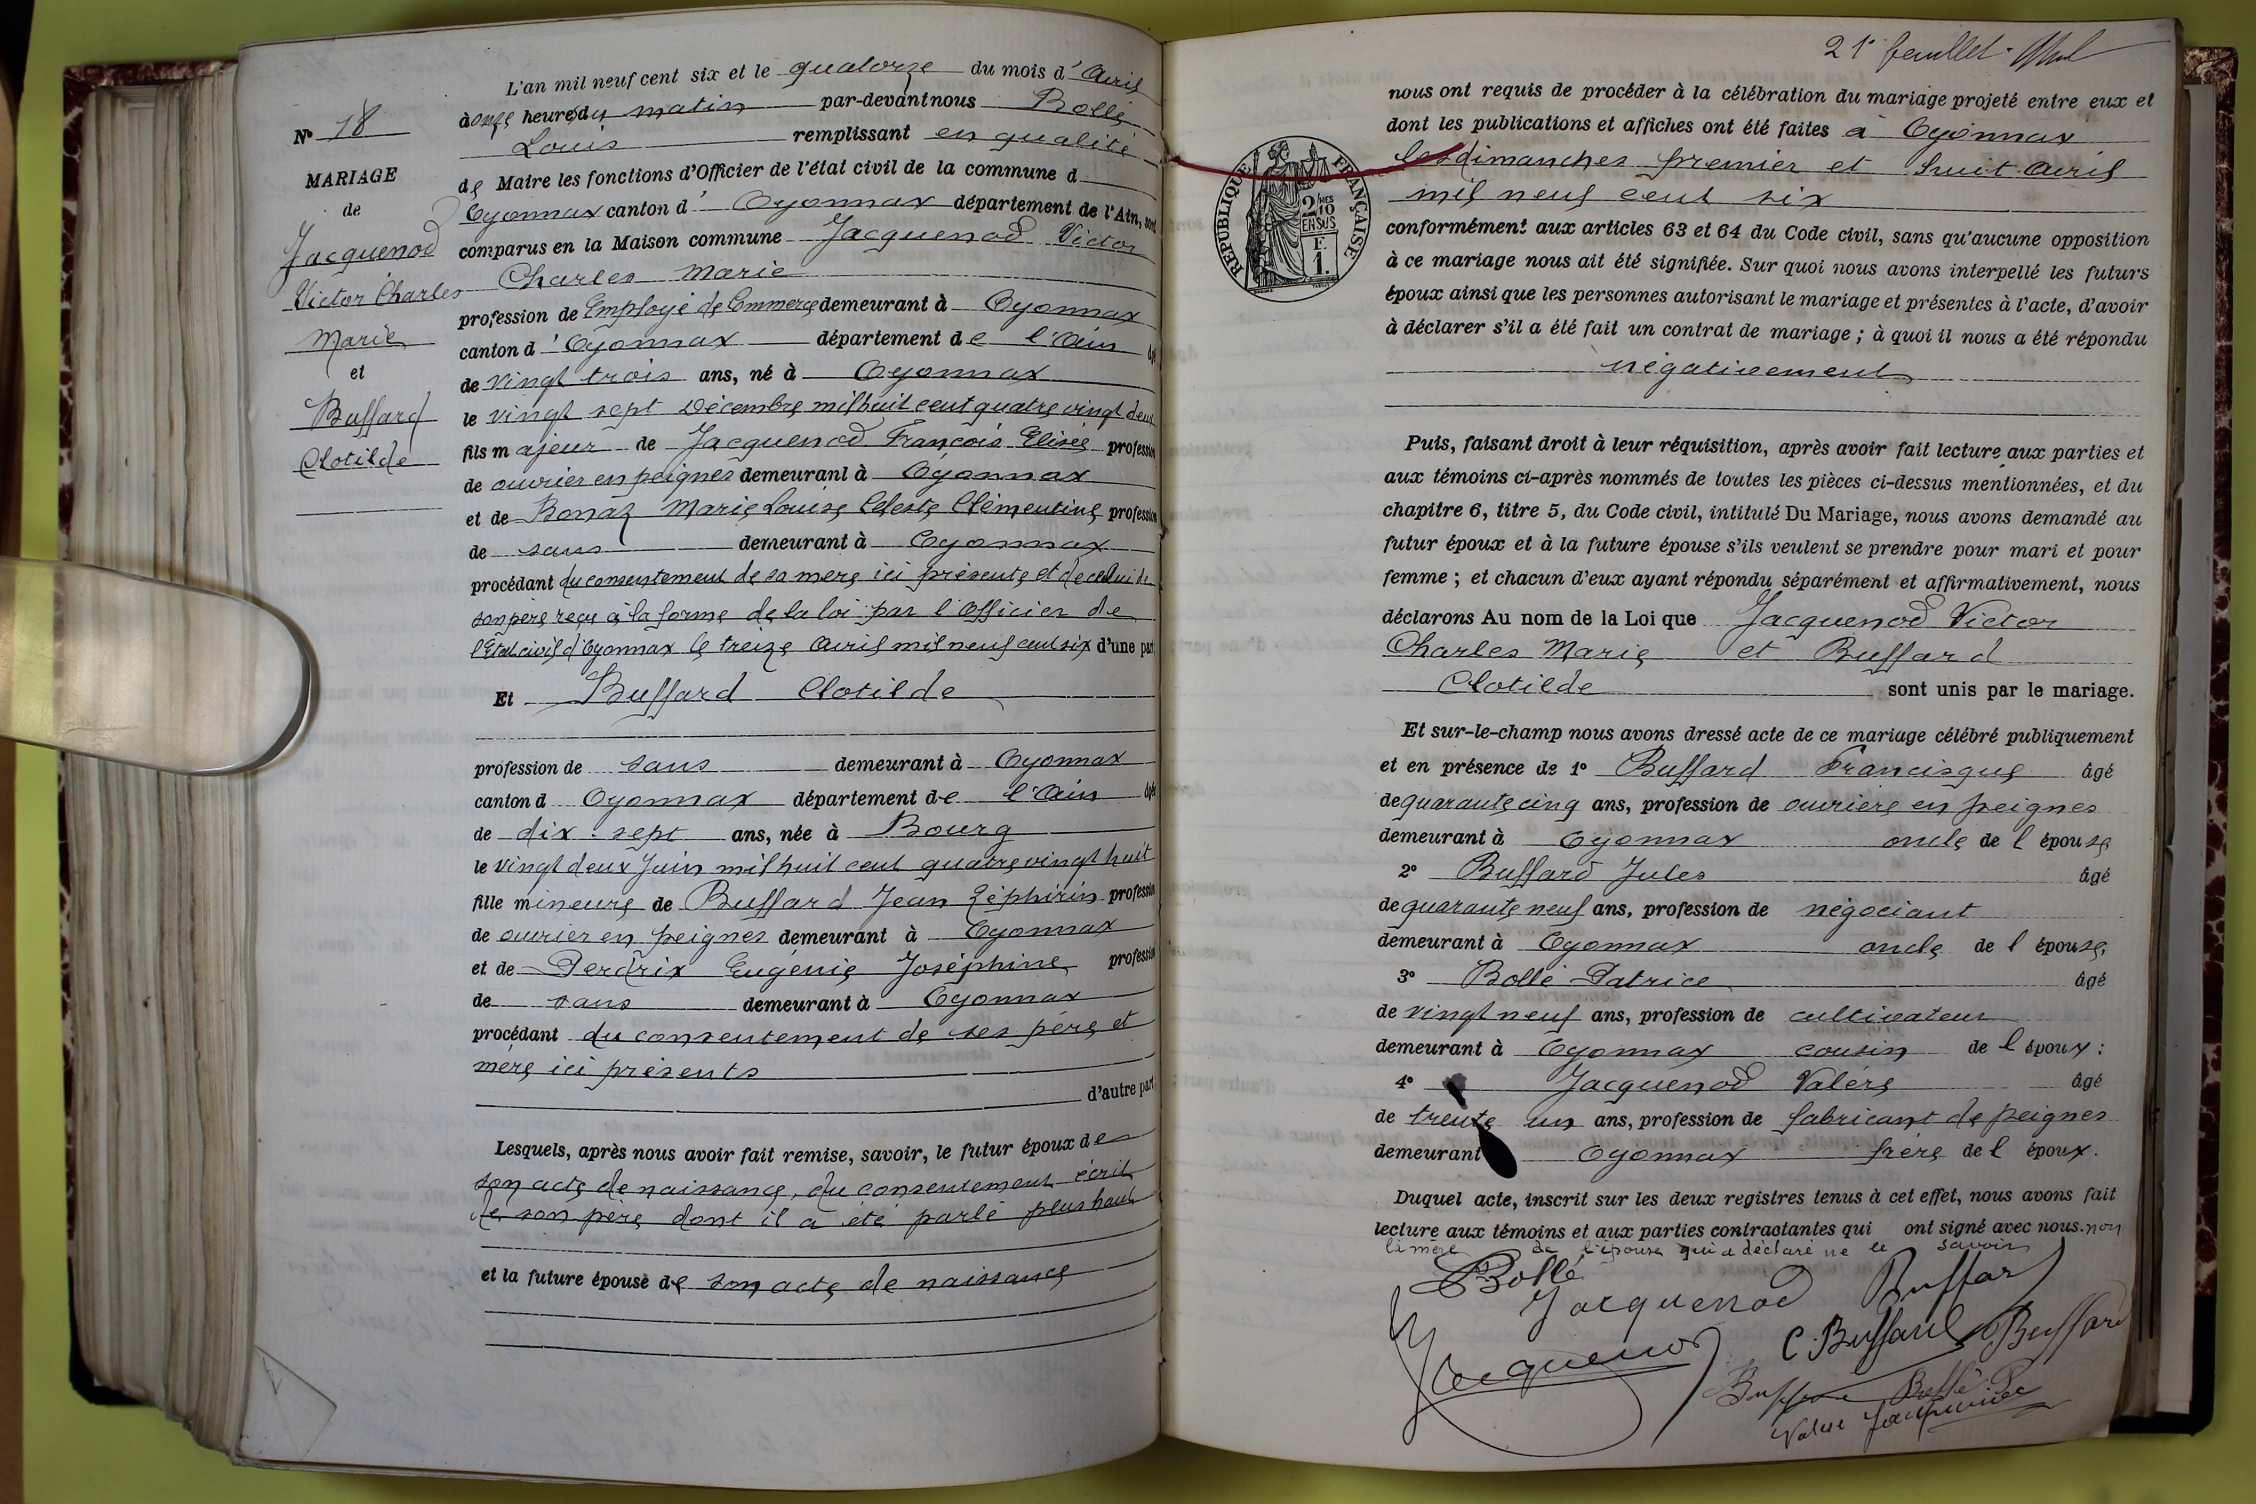 L'an mil neuf cent six et le quatorze du mois d'Avril
à onze heures du matin par-devant nous Bollé
Louis remplissant en qualité
de Maire les fonctions d'Officier de l'état civil de la commune d
Oyonnax canton d'Oyonnax département de l'Ain, sont
comparus en la Maison commune Jacquenod Victor
Charles Marie
profession de Employé de Commerce demeurant à Oyonnax
canton d'Oyonnax département de l'Ain âgé
de vingt trois ans, né à Oyonnax
le vingt sept Décembre mil huit cent quatre vingt deux
fils majeur de Jacquenod François Elisée profession
de ouvrier en peignes demeurant à Oyonnax
et de Bonaz Marie Louise Céleste Clémentine profession
de sans demeurant à Oyonnax
procédant du consentement de sa mère ici présente et de celui de
son père reçu à la forme de la loi par l'Officier de
l'Etat civil d'Oyonnax le treize Avril mil neuf cent six d'une part
Et Buffard Clotilde
profession de sans demeurant à Oyonnax
canton d Oyonnax département de l'Ain âgée
de dix-sept ans, née à Bourg
le vingt deux Juin mil huit cent quatre vingt huit
fille mineure de Buffard Jean Zéphirin profession
de ouvrier en peignes demeurant à Oyonnax
et de Perdrix Eugénie Joséphine profession
de sans demeurant à Oyonnax
procédant du consentement de ses père et
mère ici présents
d'autre part
Lesquels, après nous avoir fait remise, savoir, le futur époux de
son acte de naissance, du consentement écrit
de son père dont il a été parlé plus haut
et la future épouse de son acte de naissance
N° 18
MARIAGE
de
Jacquenod
Victor Charles
Marie
et
Buffard
Clotilde
21e feuillet
RÉPUBLIQUE FRANÇAISE
2/10
EN SUS
F.
1.
nous ont requis de procéder à la célébration du mariage projeté entre eux et
dont les publications et affiches ont été faites à Oyonnax
les dimanches premier et huit Avril
mil neuf cent six
conformément aux articles 63 et 64 du Code civil, sans qu'aucune opposition
à ce mariage nous ait été signifiée. Sur quoi nous avons interpellé les futurs
époux ainsi que les personnes autorisant le mariage et présentes à l'acte, d'avoir
à déclarer s'il a été fait un contrat de mariage ; à quoi il nous a été répondu
négativement
Puis, faisant droit à leur réquisition, après avoir fait lecture aux parties et
aux témoins ci-après nommés de toutes les pièces ci-dessus mentionnées, et du
chapitre 6, titre 5, du Code civil, intitulé Du Mariage, nous avons demandé au
futur époux et à la future épouse s'ils veulent se prendre pour mari et pour
femme ; et chacun d'eux ayant répondu séparément et affirmativement, nous
déclarons Au nom de la Loi que Jacquenod Victor
Charles Marie et Buffard
Clotilde sont unis par le mariage.
Et sur-le-champ nous avons dressé acte de ce mariage célébré publiquement
et en présence de 1° Buffard Francisque âgé
de quarante cinq ans, profession de ouvrière en peignes
demeurant à Oyonnax oncle de l épouse
2° Buffard Jules âgé
de quarante neuf ans, profession de négociant
demeurant à Oyonnax oncle de l épouse,
3° Bollé Patrice âgé
de vingt neuf ans, profession de cultivateur
demeurant à Oyonnax cousin de l époux :
4° Jacquenod Valére âgé
de trente un ans, profession de fabricant de peignes
demeurant Oyonnax frère de l époux.
Duquel acte, inscrit sur les deux registres tenus à cet effet, nous avons fait
lecture aux témoins et aux parties contractantes qui ont signé avec nous. non
la mère de l'épouse qui a déclaré ne le savoir
Bollé
Jacquenod Buffard
Jacquenod C. Buffard Buffard
Buffard Bollé
Valère Jacquenod